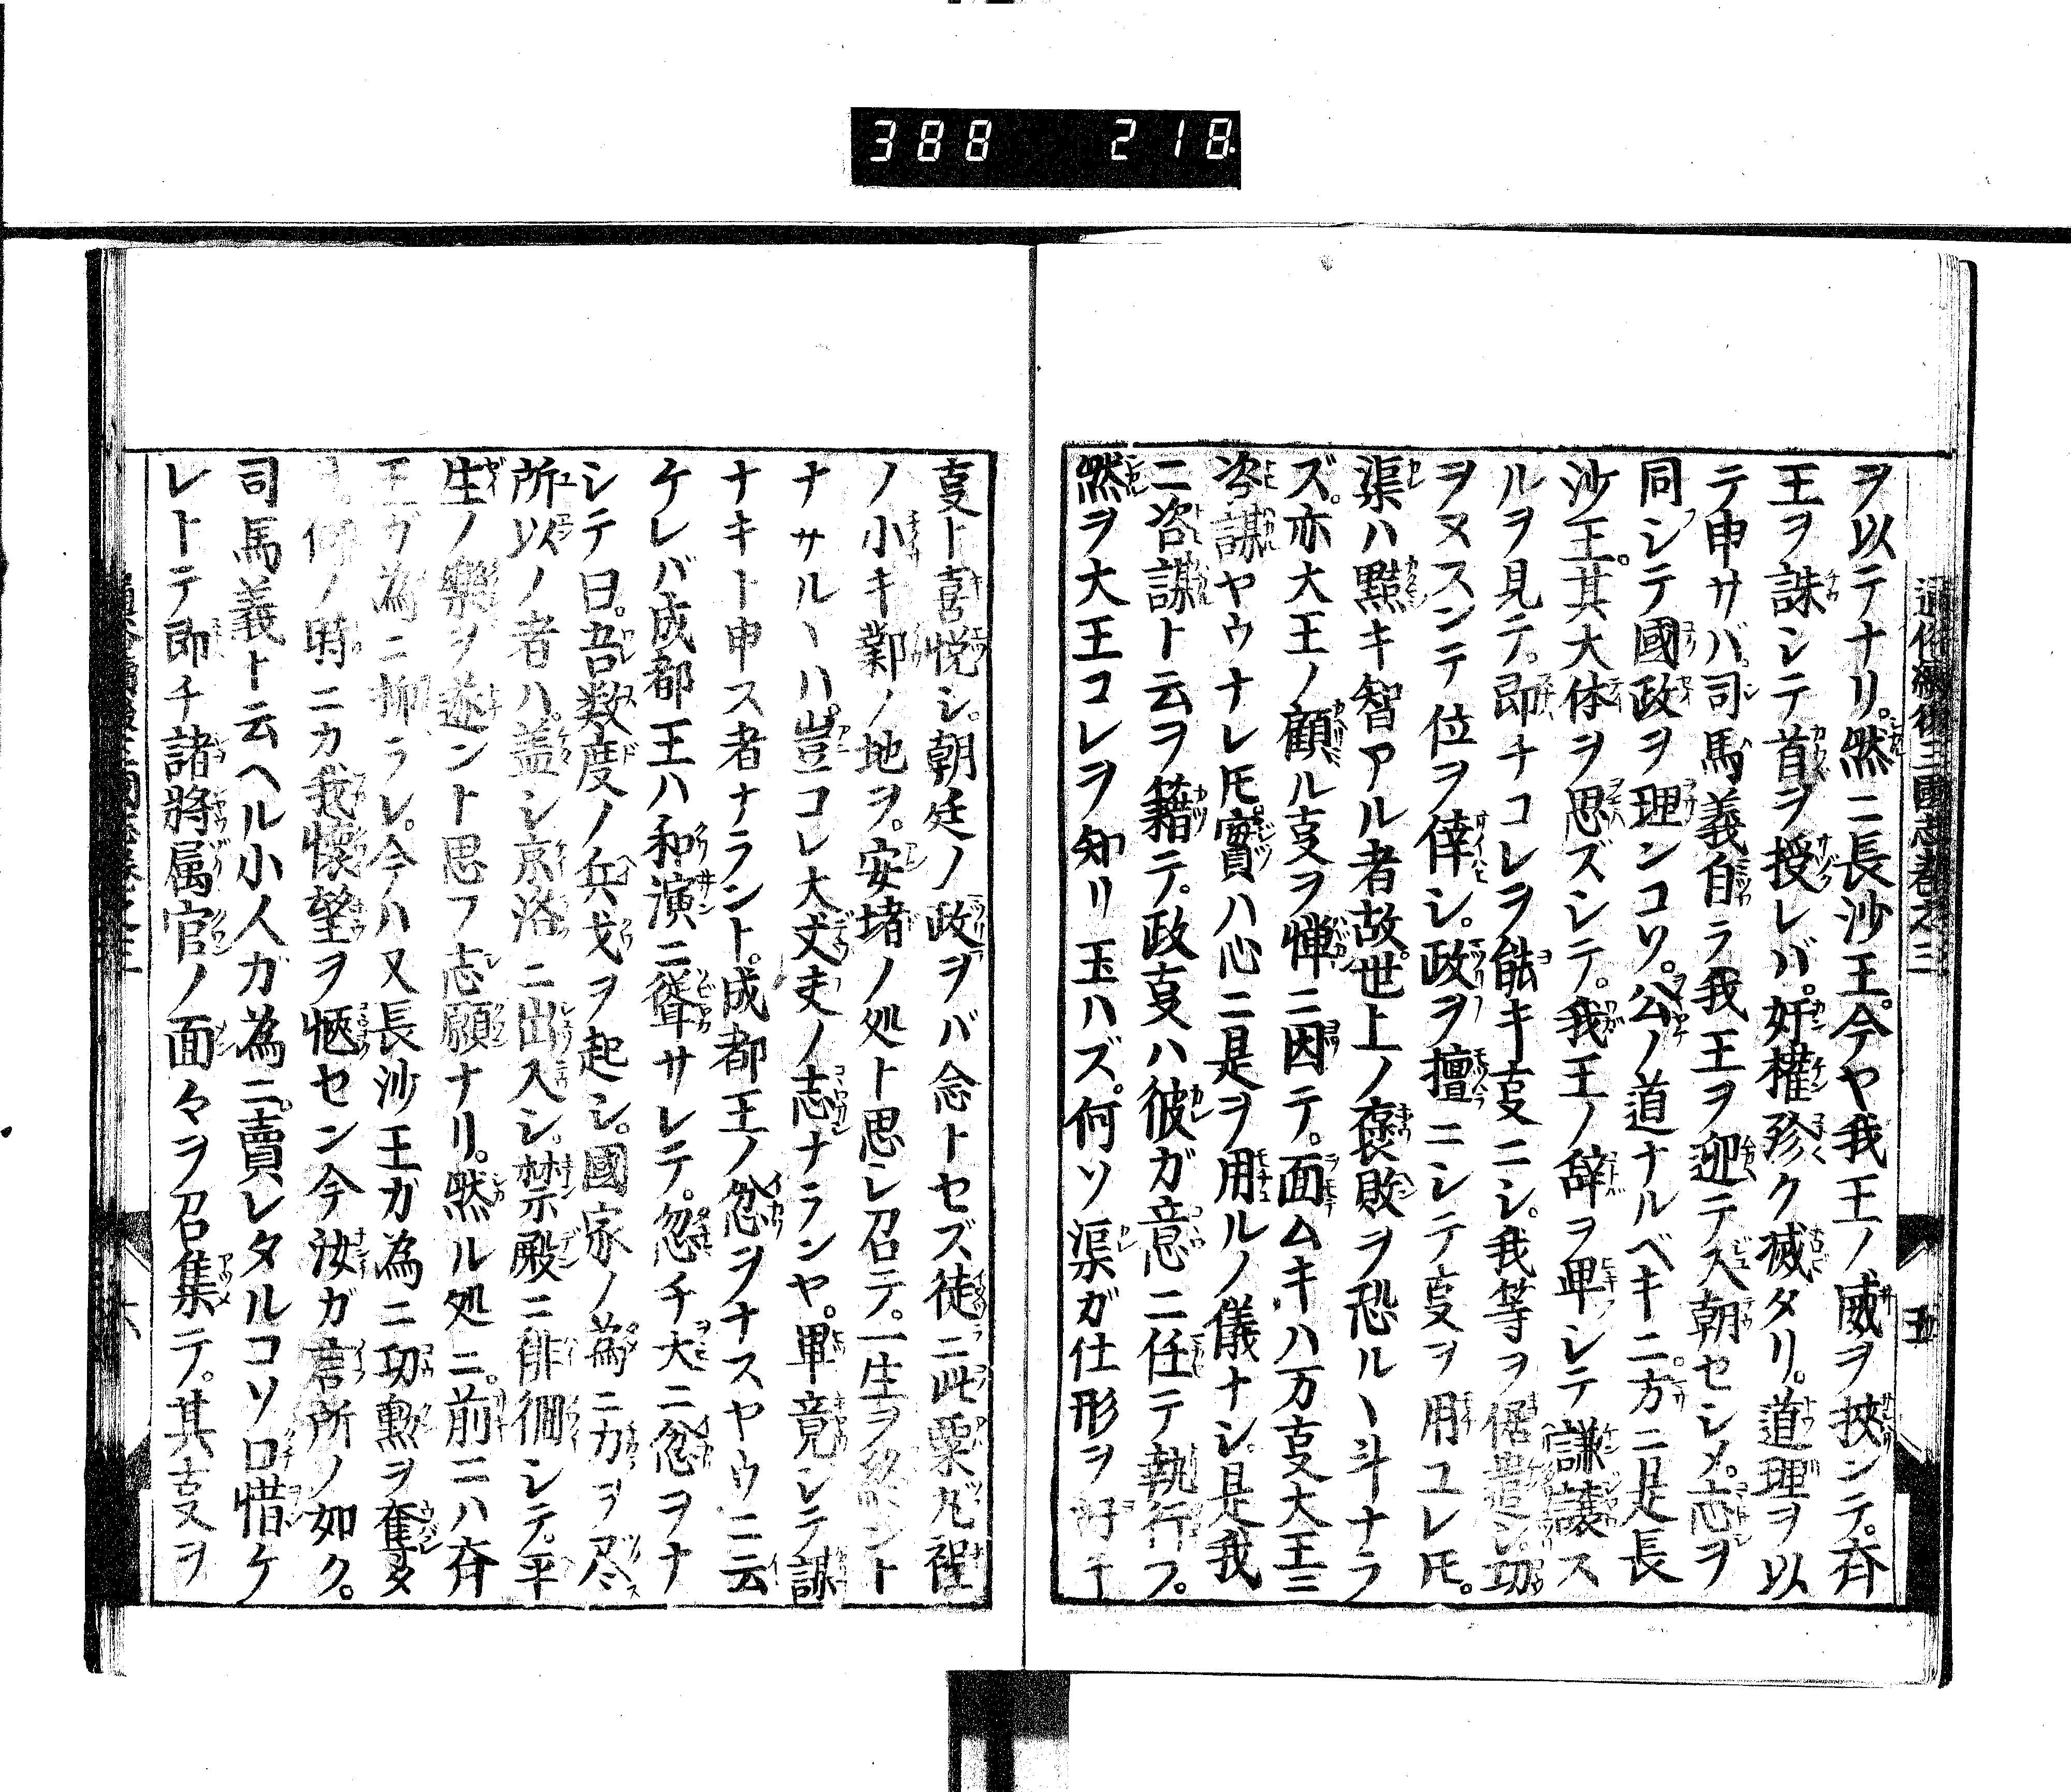 388 218
通俗續後三國志卷之三
五
ヲ以テナリ。然ニ長沙王。今ヤ我王ノ威ヲ挾ンテ。斉
王ヲ誅シテ首ヲ授レバ。奸權殄ク滅タリ。道理ヲ以
テ申サバ。司馬義自ラ我王ヲ迎テ入朝セシメ。志ヲ
同シテ國政ヲ理ンコソ。公ノ道ナルベキニ。方ニ是長
沙王。其大体ヲ思ズシテ。我王ノ辞ヲ卑シテ謙譲ス
ルヲ見テ。即チコレヲ能キ𫝆ニシ。我等ヲ倨遣ン。功
ヲヌスンテ位ヲ倖シ。政ヲ擅ニシテ𫝆ヲ用ユレ𪜈。
渠ハ黠キ智アル者故。世上ノ褒敗ヲ恐ルヽ斗ナラ
ズ。亦大王ノ顧ル𫝆ヲ憚ニ因テ。面ムキハ万𫝆大王ニ
咨謀ヤウナレ𪜈。實ハ心ニ是ヲ用ルノ儀ナシ。是我
ニ咨謀ト云ヲ籍テ。政𫝆ハ彼ガ意ニ任テ執行フ。
然ヲ大王コレヲ知リ玉ハズ。何ソ渠ガ仕形ヲ好キ
𫝆ト喜悦シ。朝廷ノ政ヲバ念トセズ徒ニ此粟丸程
ノ小キ鄴ノ地ヲ。安堵ノ処ト思シ召テ。一生ヲ終ント
ナサルヽハ。豈コレ大丈夫ノ志ナランヤ。畢竟シテ謀
ナキト申ス者ナラント。成都王ノ忿ヲナスヤウニ云
ケレバ成都王ハ和演ニ聳サレテ。忽チ大ニ忿ヲナ
シテ曰。吾数度ノ兵戈ヲ起シ。國家ノ為ニ力ヲ尽ス
所以ノ者ハ。盖シ京洛ニ出入シ。禁殿ニ徘徊シテ。平
生ノ樂ヲ遂ント思フ志願ナリ。然ル処ニ。前ニハ斉
王ガ為ニ抑ラレ。今ハ又長沙王ガ為ニ功勲ヲ奪タ
リ。何ノ時ニカ我懷望ヲ愜セン今汝ガ言所ノ如ク。
司馬義ト云ヘル小人ガ為ニ。賣レタルコソ口惜ケ
レトテ即チ諸將属官ノ面々ヲ召集テ。其𫝆ヲ
六